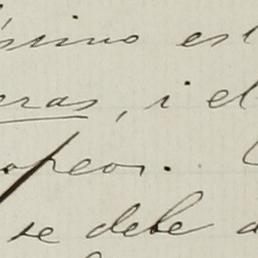 ísimo est
eras, i el
opeos.
se debe a